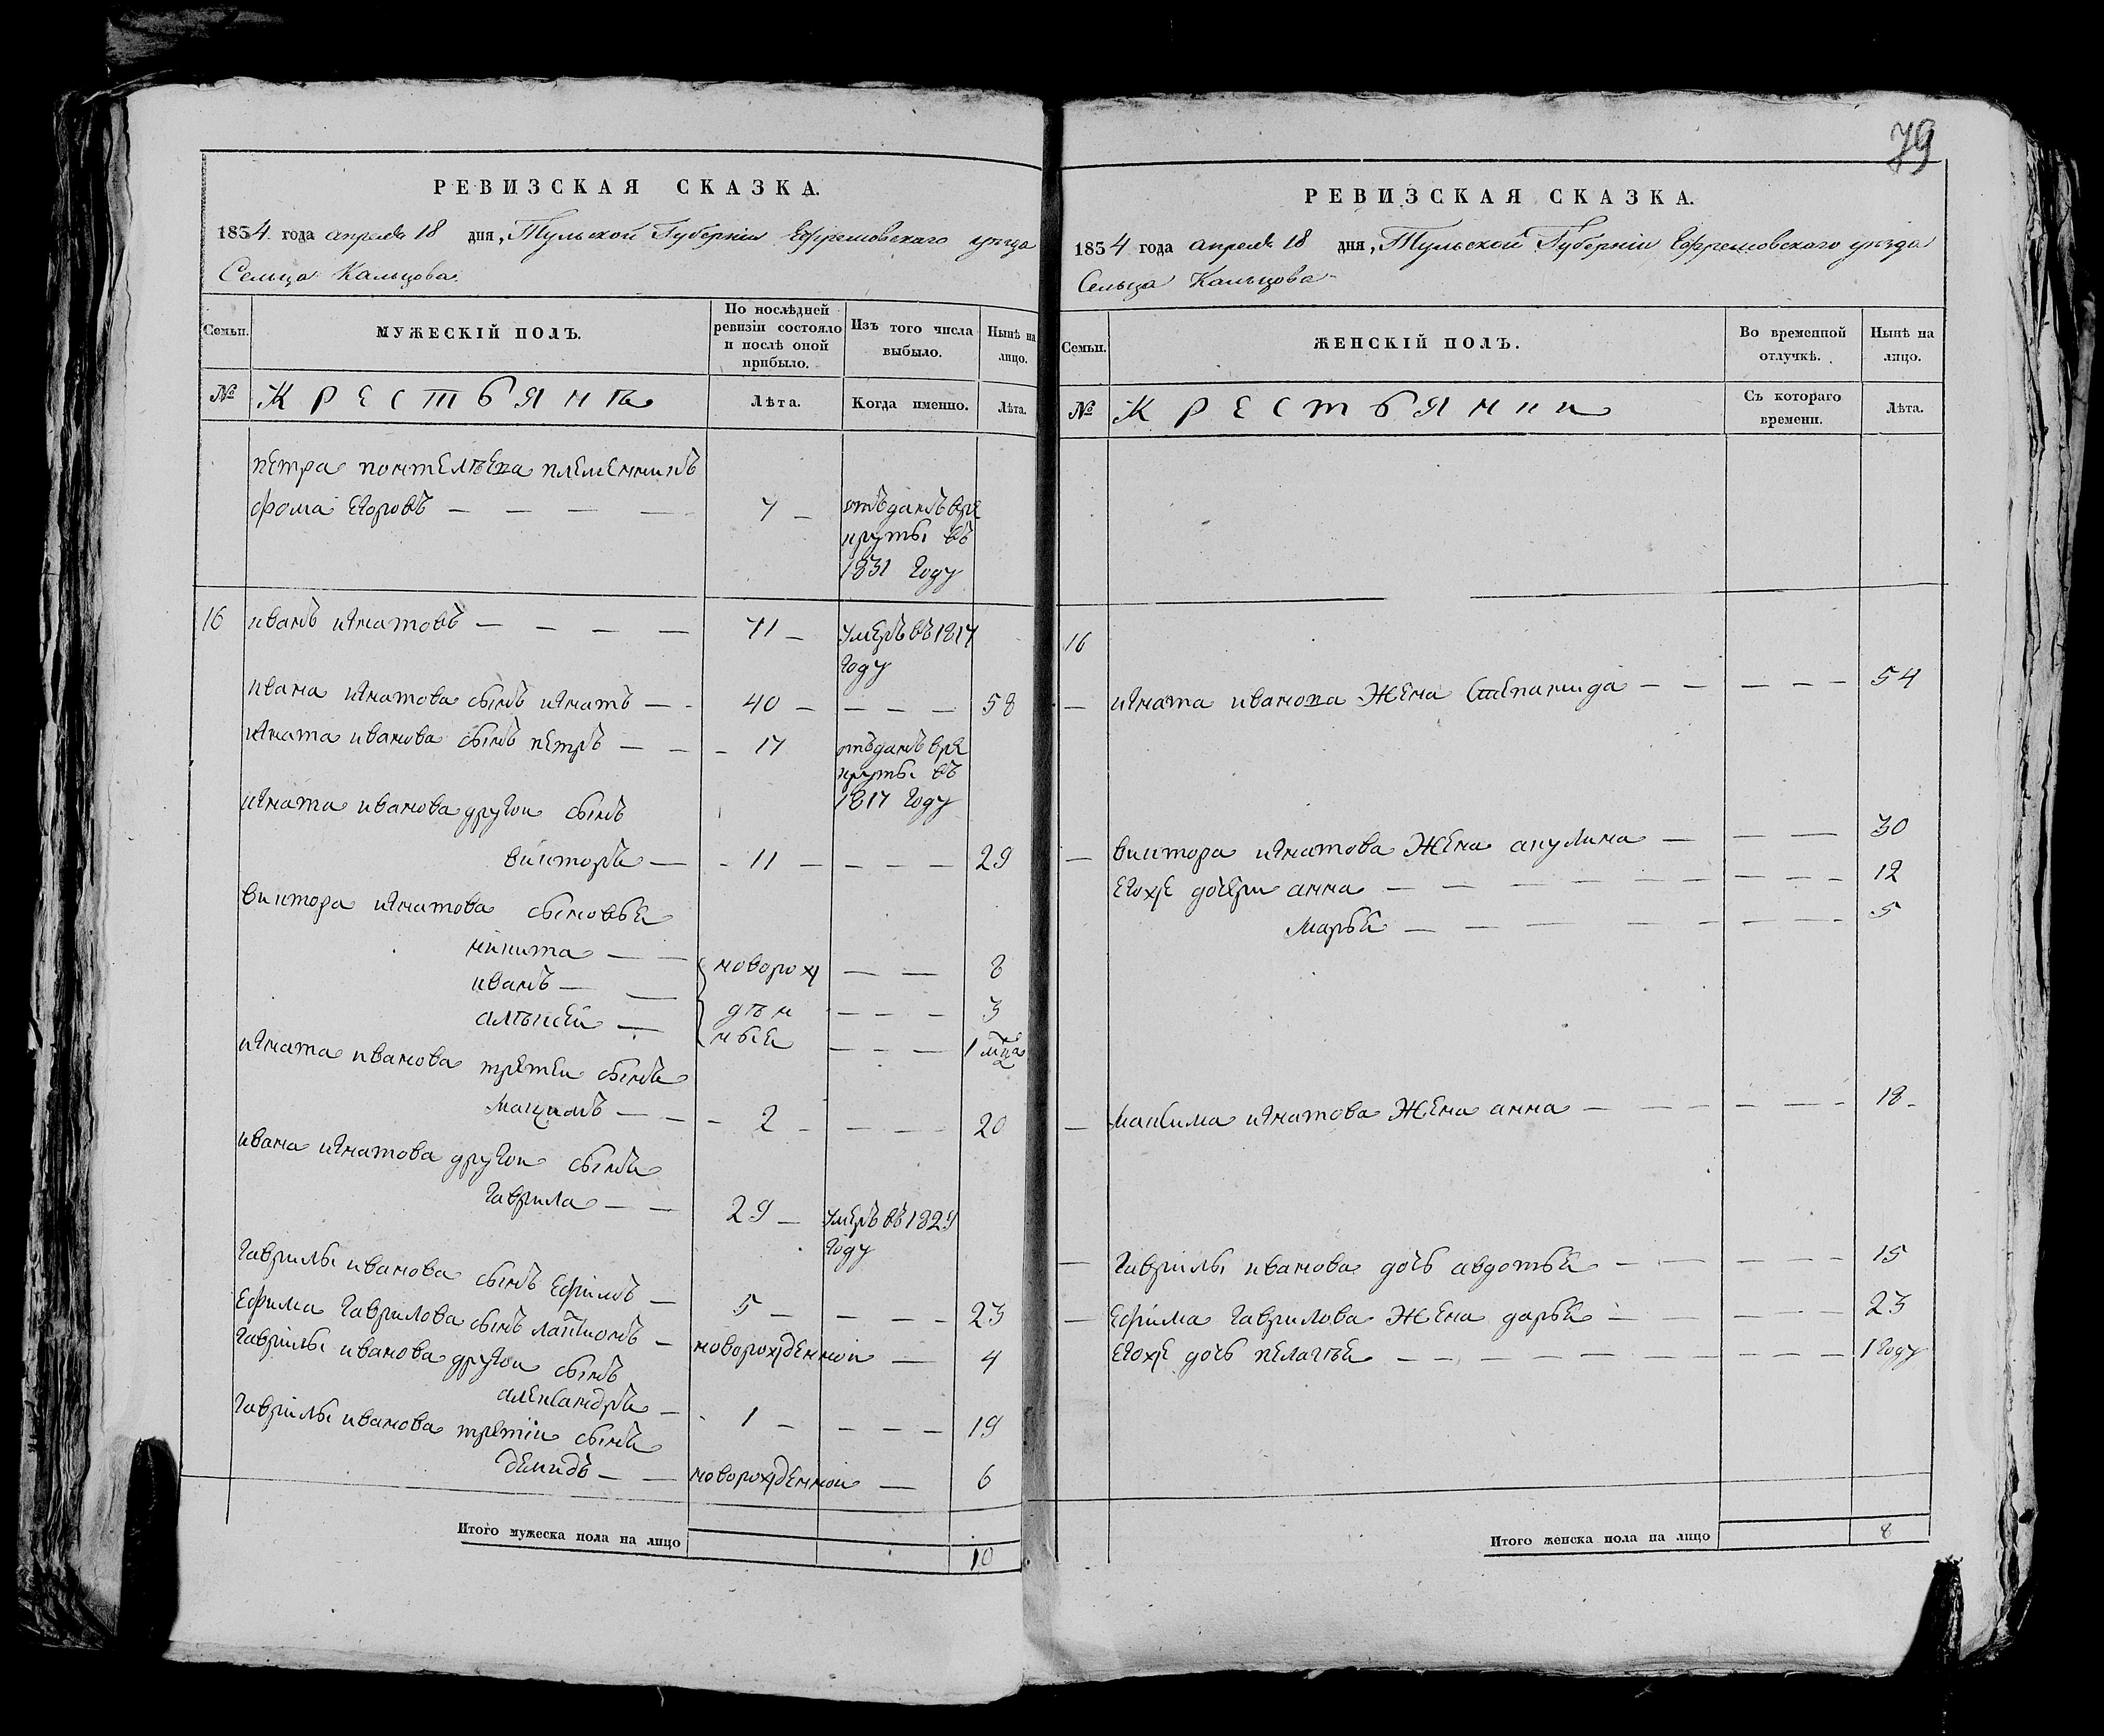 79
РЕВИЗСКАЯ СКАЗКА.
1834 года апреля 18 дня, Тульской Губерніи Ефремовскаго уезда
Сельца Кальцова
Семьи.
МУЖЕСКІЙ ПОЛЪ.
По послѣдней ревизіи состояло и послѣ оной прибыло.
Изъ того числа выбыло.
Нынѣ на лицо.
№
Крестьянѣ
Лѣта.
Когда именно.
Лѣта.
петра понтелѣева племенникъ
фома егоровъ — — — — 7 — отъданъ вре
круты въ
1831 году
16 иванъ игнатовъ — — — — 71 — умеръ въ 1817
году
ивана игнатова сынъ игнатъ — - 40 — — — — 58
игната иванова сынъ петръ — — - 17 отъданъ вре
круты въ
1817 году
игната иванова другои сынъ
викторъ — - 11 — — — — 29
виктора игнатова сыновья
никита — — новорож — — 8
иванъ — — дѣн — — — 3
алѣксей — ныя — — — 1 мца
игната иванова третеи сынъ
максимъ — — - 2 - — — — 20
ивана игнатова другои сынъ
гаврила — — 29 — умеръ въ 1829
году
гаврилы иванова сынъ ефимъ — 5 — — — — 23
ефима гаврилова сынъ лаѵионъ — новорожденнои — 4
гаврилы иванова другои сынъ
александръ — - 1 — — — — 19
гаврилы иванова третiи сынъ
демидъ — — новорожденнои — 6
Итого мужеска пола на лицо
10
РЕВИЗСКАЯ СКАЗКА.
1834 года апреля 18 дня, Тульской Губерніи Ефремовскаго уезда
Сельца Кальцова
Семьи.
ЖЕНСКІЙ ПОЛЪ.
Во временной отлучкѣ.
Нынѣ на лицо.
№
Крестьянки
Съ котораго времени.
Лѣта.
16
— игната иванова жена степанида — — — — — 54
— виктора игнатова жена акулина — — — 30
егоже дочери анна — — — — — — — — 12
марья — — — — — — — — 5
— максима игнатова жена анна — — — — — — 18 -
— гаврилы иванова дочь авдотья — — — — — 15
— ефима гаврилова жена дарья — — — — — 23
егоже дочь пелагѣя — — — — — — — — 1 году
Итого женска пола на лицо
8